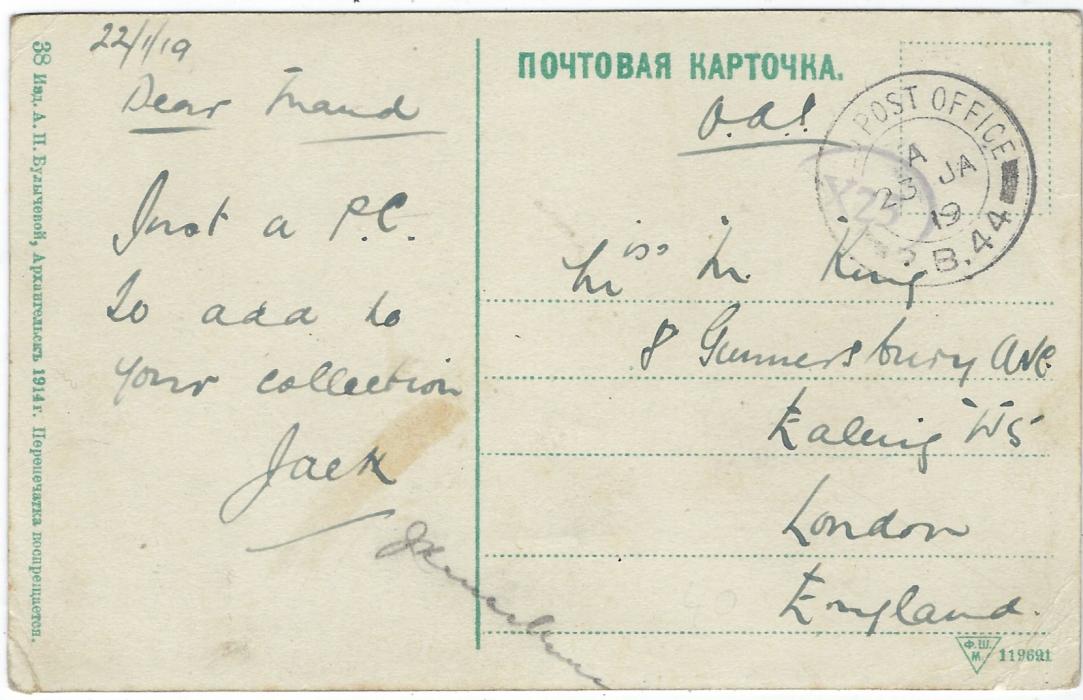 22/1/19
Dear Maud
Just a P.C.
to add to
your collection
Jack
ПОЧТОВАЯ КАРТОЧКА.
O.A.S.
POST OFFICE
A
23 JA
19
B.44
X23
Miss M King
8 Gunnersbury Ave
Ealing W5
London
England.
Ф.Ш.
М.
119691
38 Изд. А. П. Булычевой, Архангельскъ 1914 г. Перепечатка воспрещается.